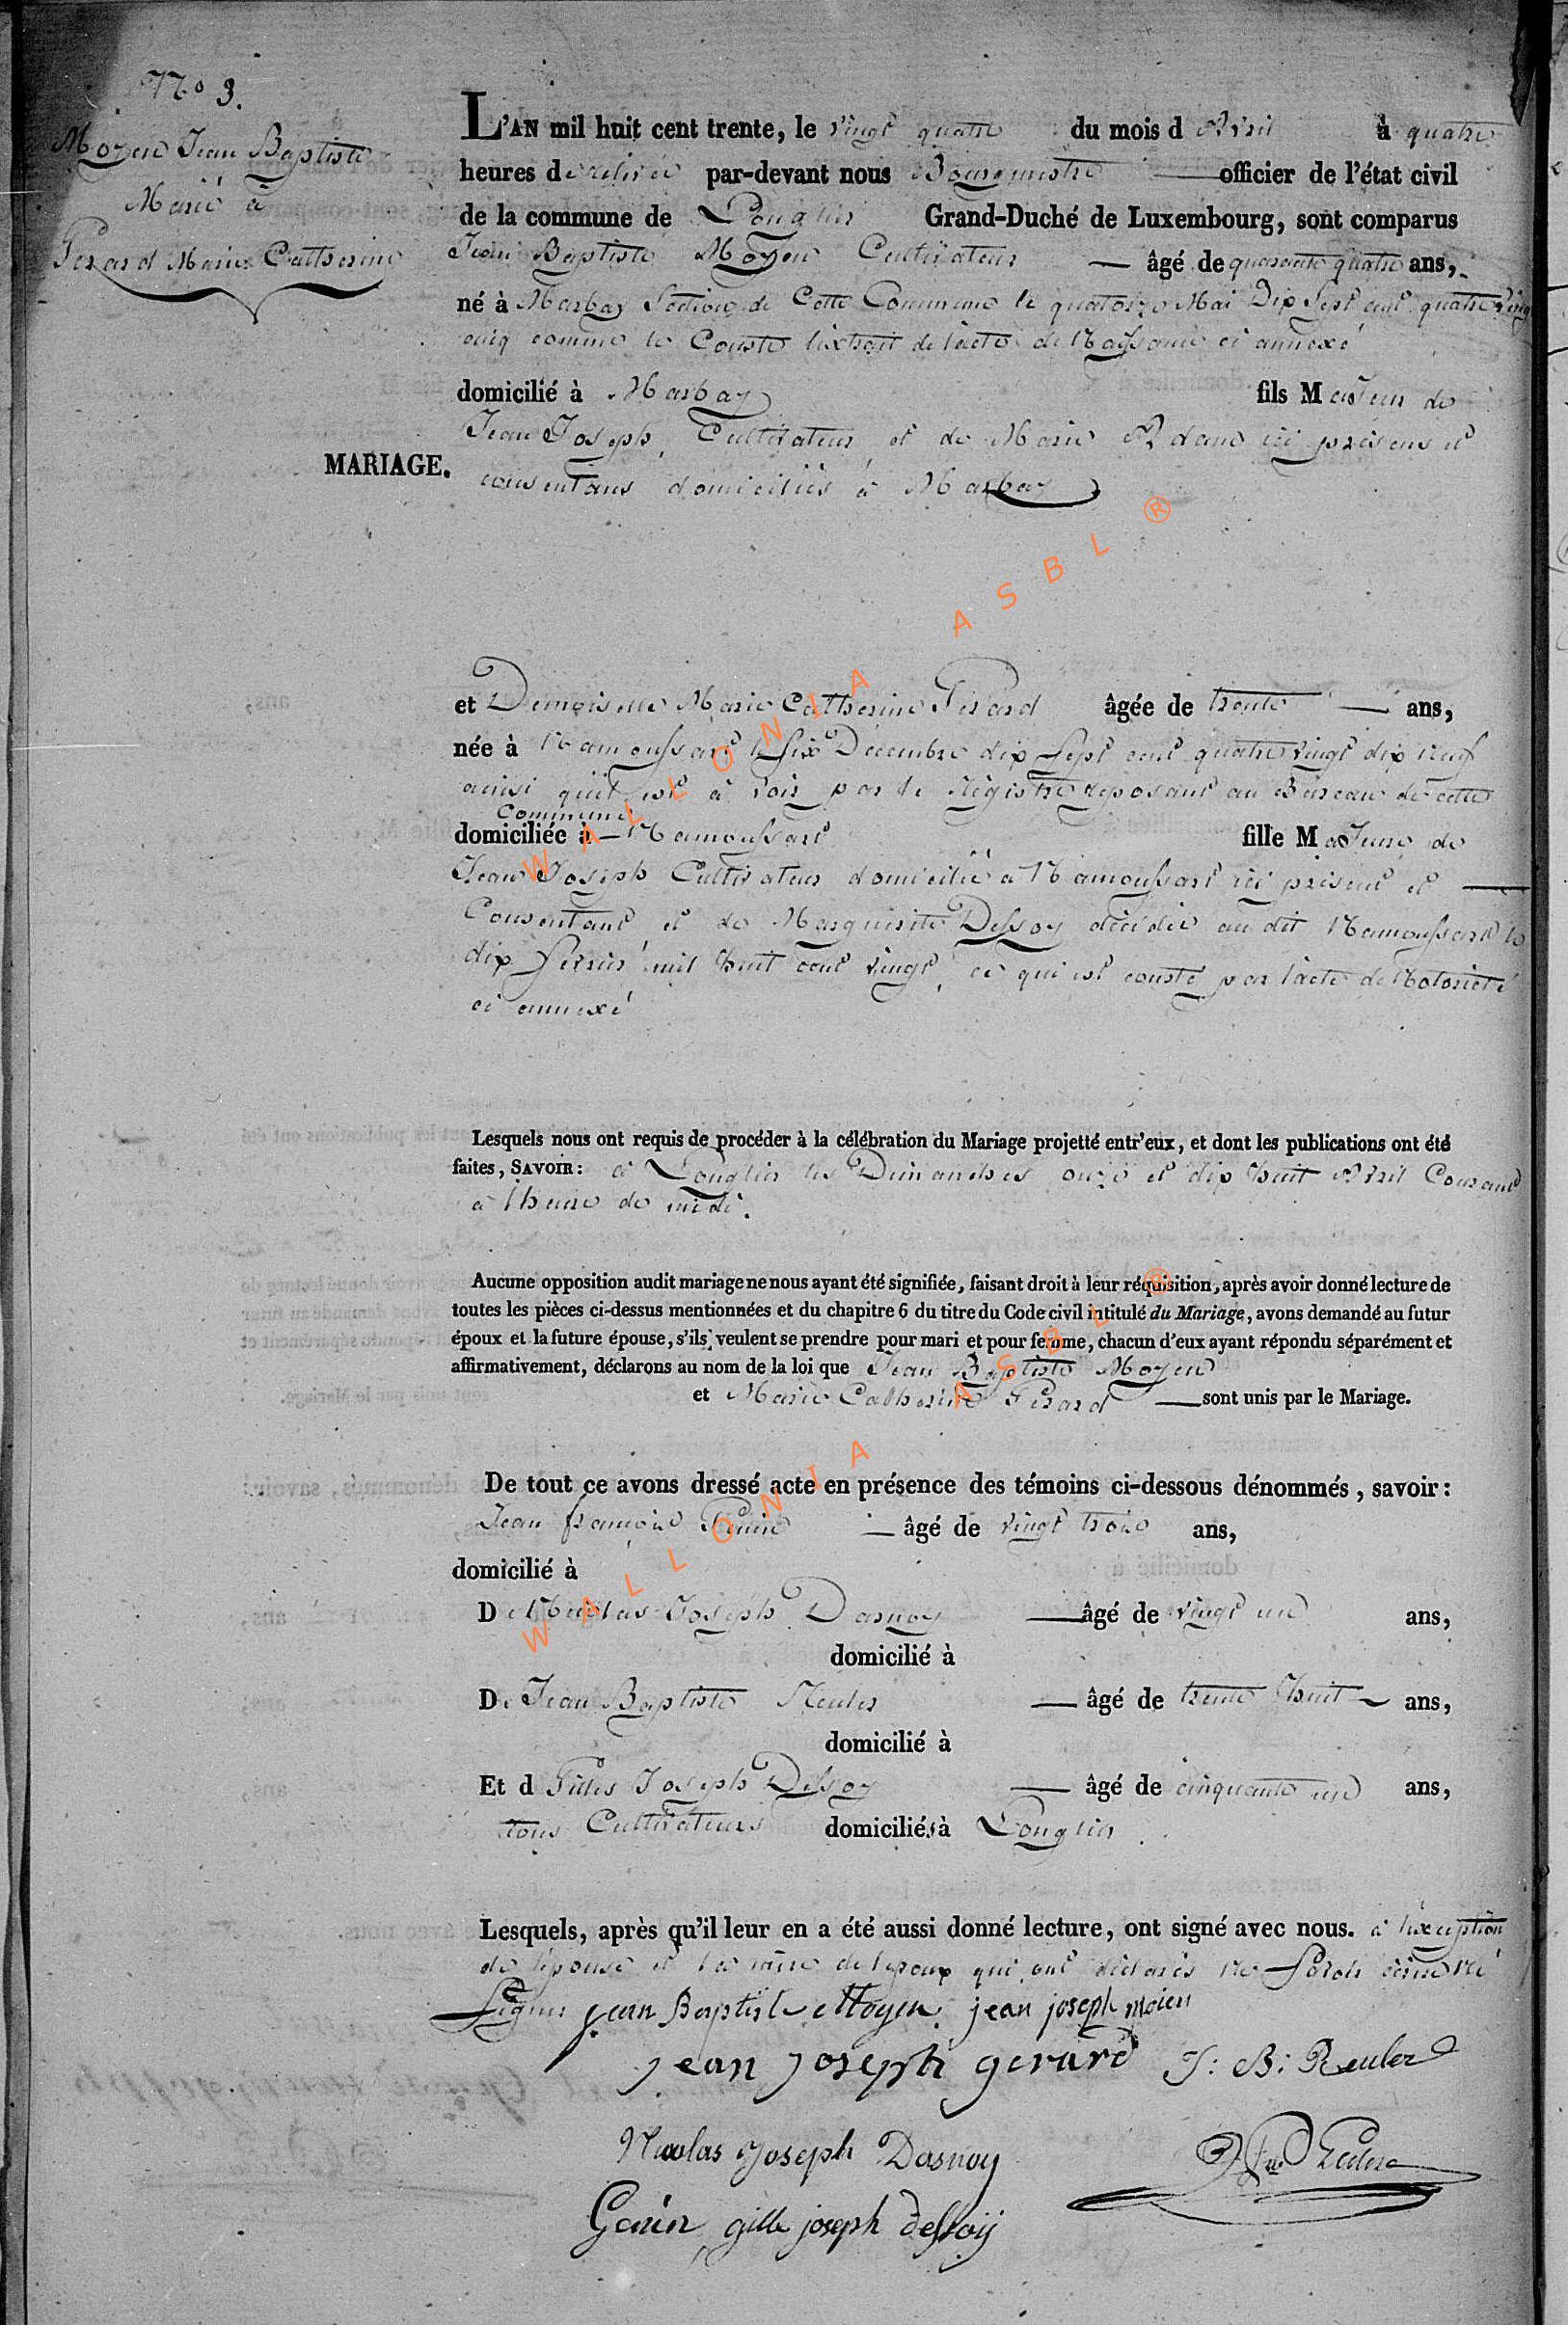 No 3.
Moyen Jean Baptiste
Marié à
Gérard Marie Catherine
MARIAGE.
L'AN mil huit cent trente, le vingt quatre du mois d Avril à quatre
heures de relevée par-devant nous Bourgmestre officier de l'état civil
de la commune de Longlier Grand-Duché de Luxembourg, sont comparus
Jean Baptiste Moyen Cultivateur âgé de quarante quatre ans,
né à Marbay Section de Cette Commune le quatorze Mai Dix Sept cent quatre vingt
cinq comme le Conste l'extrait de l'acte de Naissance ci annexé
domicilié à Marbay fils Majeur de
Jean Joseph, Cultivateur et de Marie Adam ici présens et
consentans domiciliés à Marbay
et Demoiselle Marie Catherine Gérard âgée de trente ans,
née à Namoussart le six Décembre dix sept cent quatre vingt dix neuf
ainsi qu'il est à voir par le Régistre reposant au Bureau de cette
Commune
domiciliée à Namoussart fille Majeure de
Jean Joseph Cultivateur domicilié à Namoussart ici présent et
Consentant et de Marguerite Dessoy décédée au dit Namoussart le
dix février mil huit cent vingt, ce qui est consté par l'acte de Notoriété
ci annexé
Lesquels nous ont requis de procéder à la célébration du Mariage projetté entr'eux, et dont les publications ont été
faites, SAVOIR: à Longlier les Dimanches onze et dix huit Avril Courant
à l'heure de midi.
Aucune opposition audit mariage ne nous ayant été signifiée, faisant droit à leur réquisition, après avoir donné lecture de
toutes les pièces ci-dessus mentionnées et du chapitre 6 du titre du Code civil intitulé du Mariage, avons demandé au futur
époux et la future épouse, s'ils veulent se prendre pour mari et pour femme, chacun d'eux ayant répondu séparément et
affirmativement, déclarons au nom de la loi que Jean Baptiste Moyen
et Marie Catherine Gérard sont unis par le Mariage.
De tout ce avons dressé acte en présence des témoins ci-dessous dénommés, savoir:
Jean françois âgé de vingt trois ans,
domicilié à
De Nicolas Joseph Dasnoy âgé de vingt un ans,
domicilié à
De Jean Baptiste Reuler âgé de trente huit ans,
domicilié à
Et d Gilles Joseph Dessoy âgé de cinquante un ans,
tous Cultivateurs domiciliés à Longlier
Lesquels, après qu'il leur en a été aussi donné lecture, ont signé avec nous. à l'exception
de l'épouse et la mère de l'époux qui ont déclarés ne savoir écrire ni
signer jean Baptiste Moyen jean joseph moien
jean joseph gerard J: B: Reuler
Nicolas joseph Dasnoy
gille joseph dessoij
WALLONIA ASBL ®
WALLONIA ASBL ®